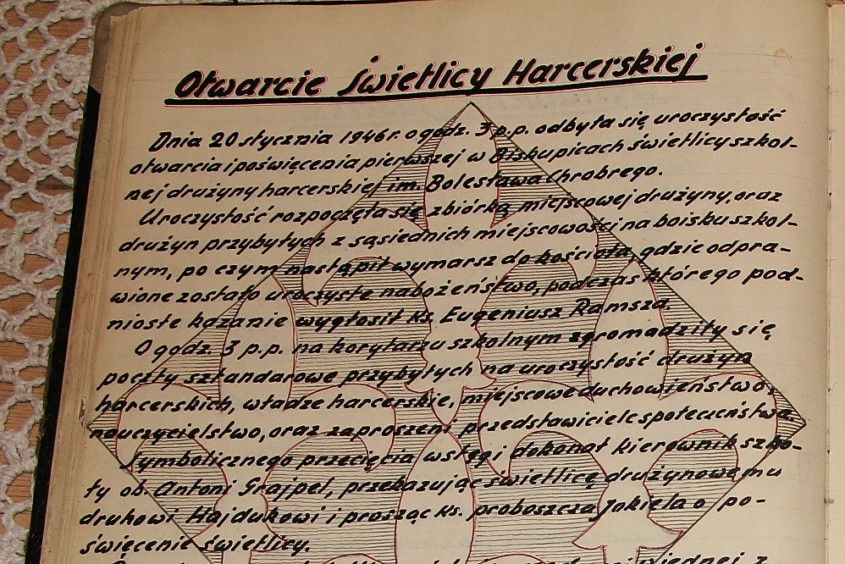 Otwarcie Świetlicy Harcerskiej
Dnia 20 stycznia 1946 r. o godz. 3 p.p. odbyła się uroczystość
otwarcia i poświęcenia pierwszej w Biskupicach świetlicy szkol-
nej drużyny harcerskiej im. Bolesława Chrobrego.
Uroczystość rozpoczęła się zbiórką miejscowej drużyny, oraz
drużyn przybyłych z sąsiednich miejscowości na boisku szkol-
nym, po czym nastąpił wymarsz do kościoła, gdzie odpra-
wione zostało uroczyste nabożeństwo, podczas którego pod-
niosłe kazanie wygłosił ks. Eugeniusz Ramsza.
O godz. 3 p.p. na korytarzu szkolnym zgromadziły się
poczty sztandarowe przybyłych na uroczystość drużyn
harcerskich, władze harcerskie, miejscowe duchowieństwo,
nauczycielstwo, oraz zaproszeni przedstawiciele społeczeństwa.
Symbolicznego przecięcia wstęgi dokonał kierownik szko-
ły ob. Antoni Grajpel, przekazując świetlicę drużynowemu
druhowi Hajdukowi i prosząc ks. proboszcza Jokiela o po-
święcenie świetlicy.